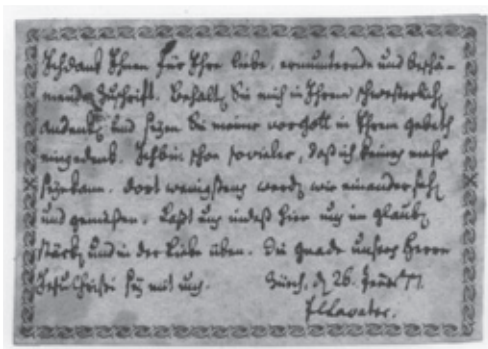 Ich dank Ihnen für Ihre liebe, ermunternde und beschä-
mende Zuschrift. Behalten Sie mich in Ihrem schwesterlichen
Andenken und seyen Sie meiner vor Gott in Ihrem gebeth
eingedenk. Ich bin schon so vieler, daß ich keines mehr
seyn kann. dort wenigstens werden wir einander sehen
und genießen. Laßt uns indeß hier uns im glauben
stärken und in der Liebe üben. Die gnade unsers Herrn
Jesu Christi sey mit uns. Zürich, d. 26. 77.
JCLavater.